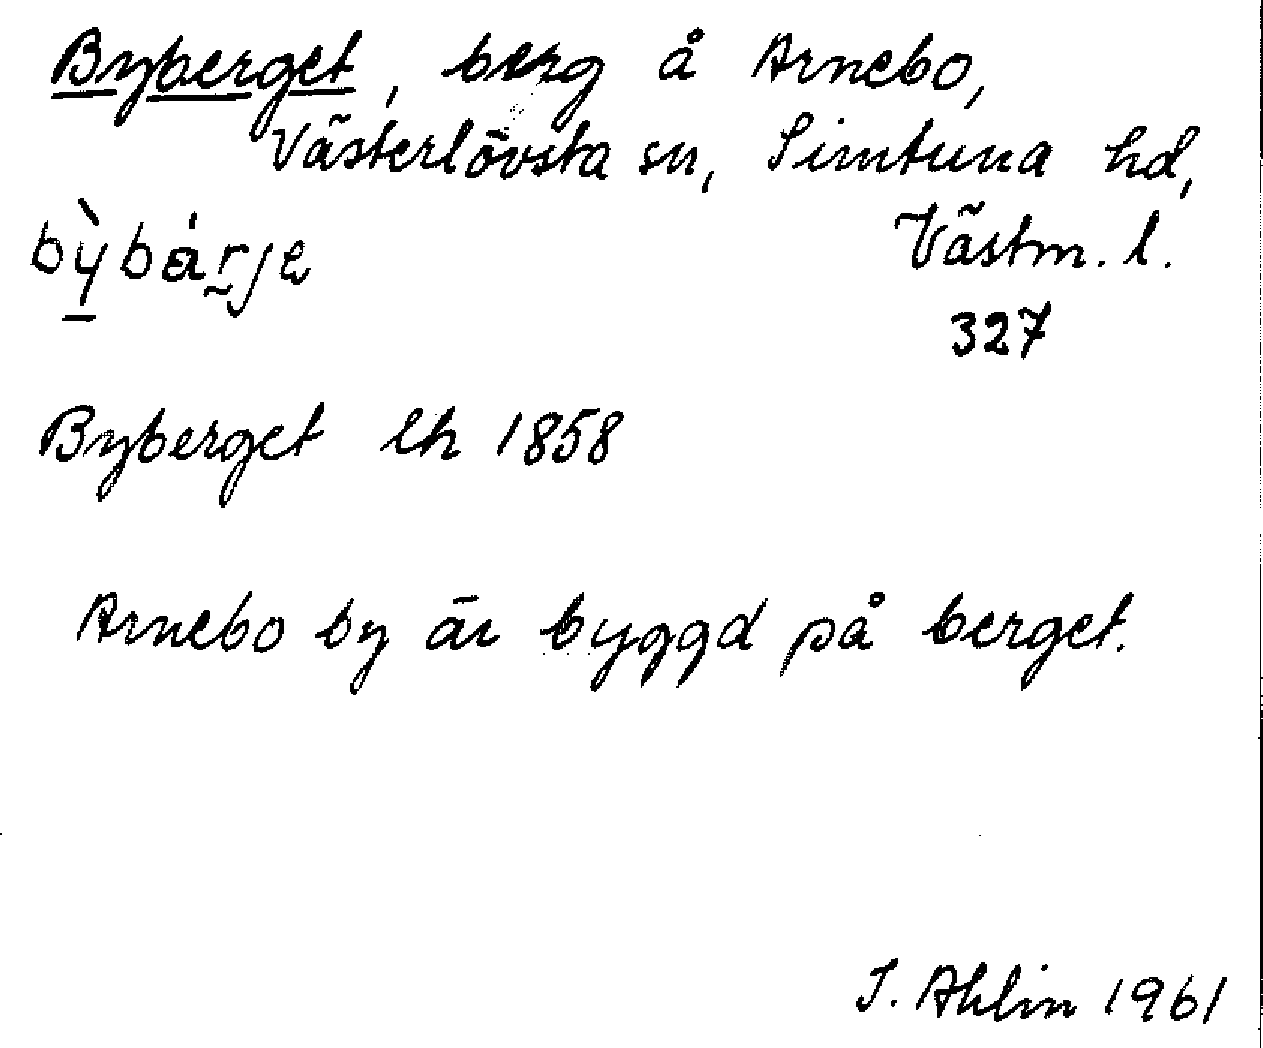 Byberget, berg å Arnebo,
Västerlövsta sn, Simtuna hd,
bỳbárje Västm. l.
327
Byberget lh 1858
Arnebo by är byggd på berget.
I. Ahlin 1961